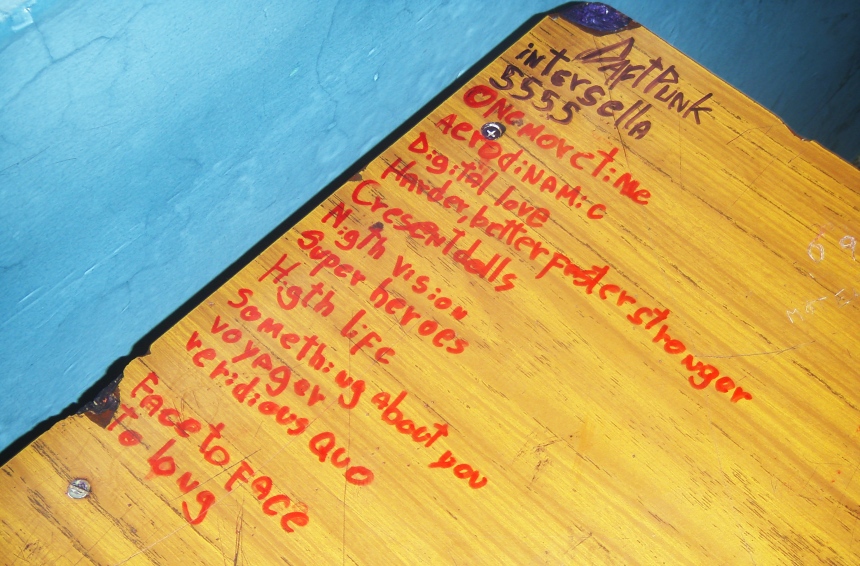 DAFtPUNK
intersella
5555
ONEmoretime
AerodiNAMic
Digital love
Harder,better faster stronger
Cresentdolls
Nigth vision
Super heroes
Higth life
Something about you
voyager
veridious Quo
Face to Face
to long